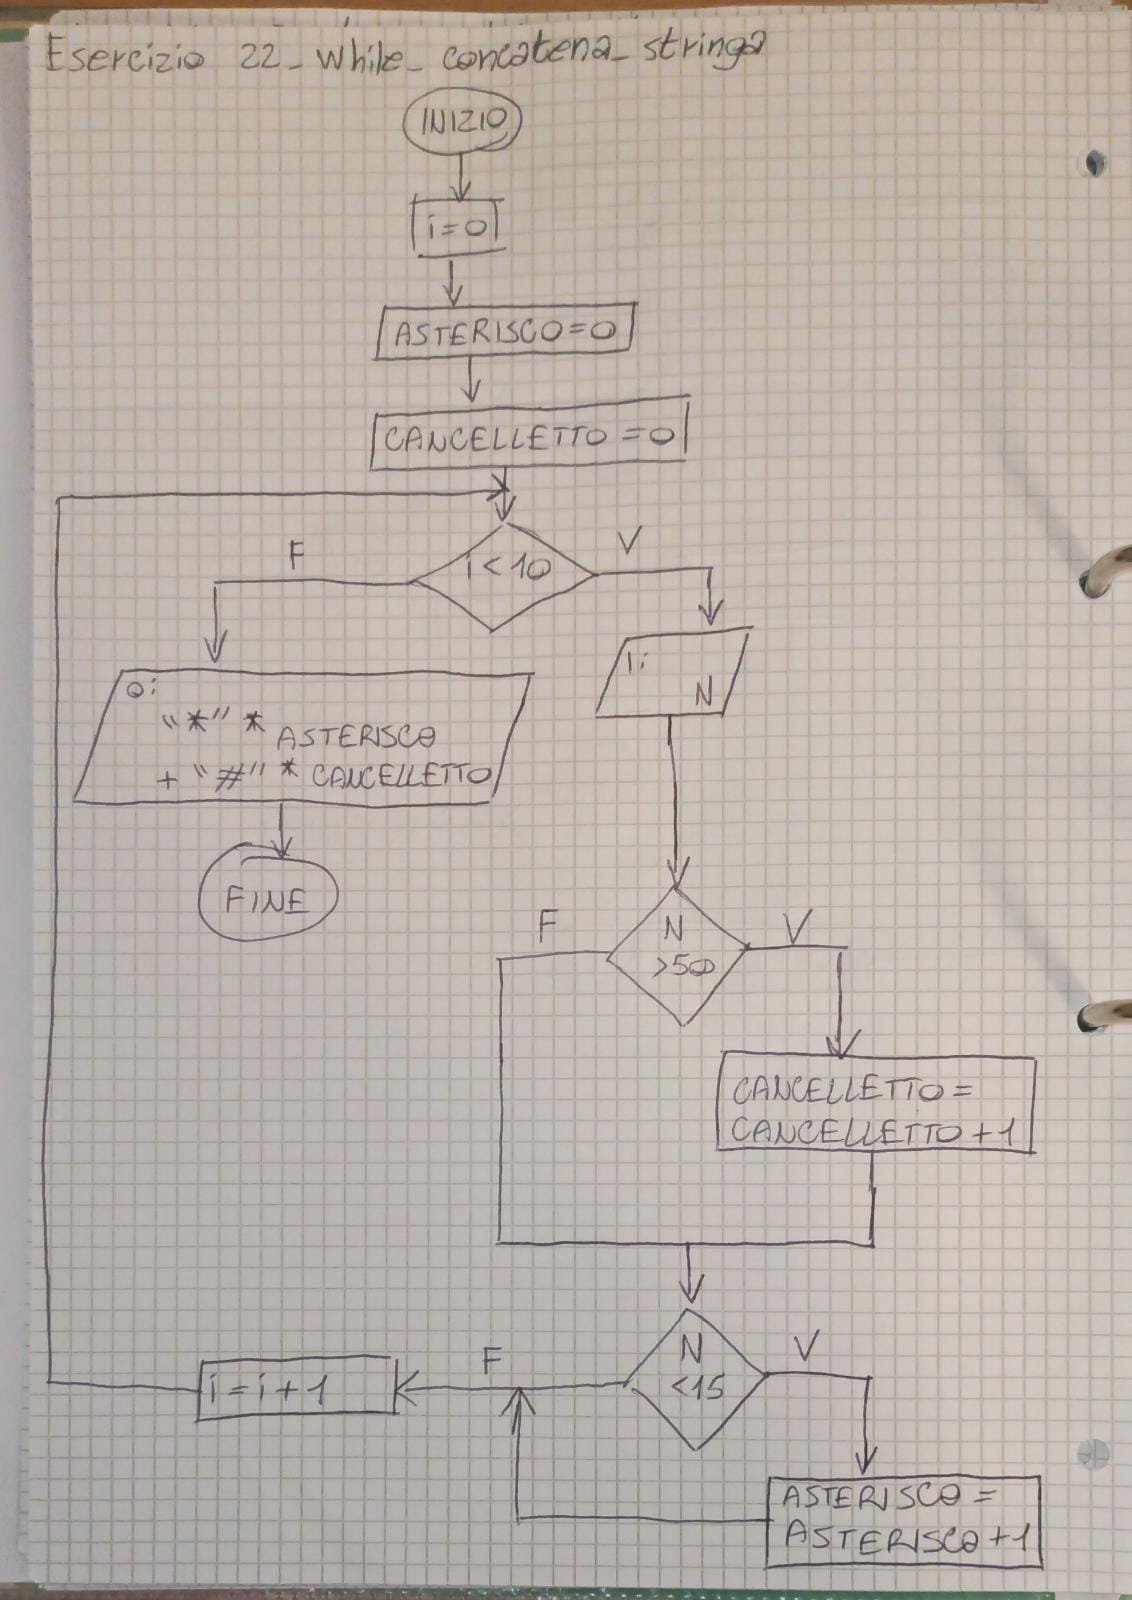 Esercizio 22_while_concatena_stringa
INIZIO
i=0
ASTERISCO=0
CANCELLETTO=0
i<10
F
V
O:
"*" * ASTERISCO
+ "#" * CANCELLETTO
FINE
I:
N
N
>50
F
V
CANCELLETTO=
CANCELLETTO+1
N
<15
F
V
i=i+1
ASTERISCO=
ASTERISCO+1